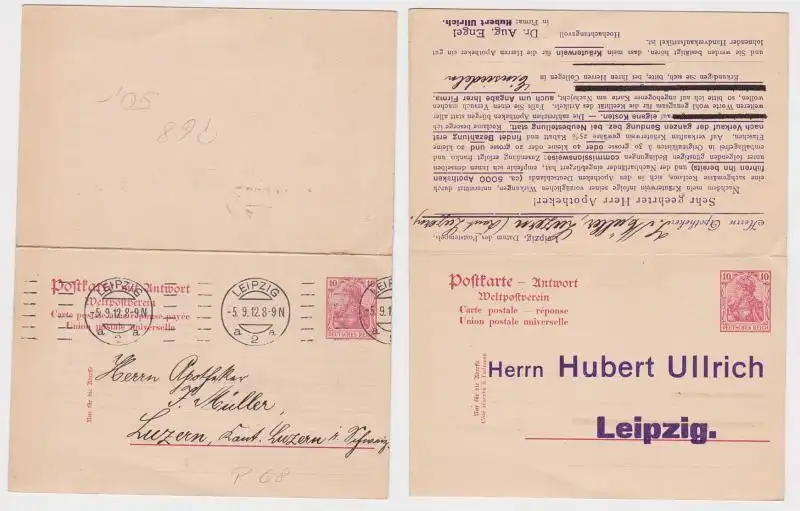 50,-
P 68
Postkarte mit Antwort
Weltpostverein
Carte postale avec réponse payée
Union postale universelle
Nur für die Adresse
LEIPZIG
-5.9.12.8-9N
a 2 a
LEIPZIG
-5.9.12.8-9N
a 2 a
10 10
DEUTSCHES REICH
Herrn Apotheker
F. Müller,
Luzern, Kant. Luzern i. Schweiz
P 68
Leipzig, Datum des Poststempels.
Herrn Apotheker F. Müller, Luzern (Kant. Luzern)
Sehr geehrter Herr Apotheker!
Nachdem mein Kräuterwein infolge seiner vorzüglichen Wirkungen, unterstützt durch
eine sachgemässe Reklame, sich in den Apotheken Deutschlands (ca. 5000 Apotheken
führen ihn bereits) und der Nachbarländer eingebürgert hat, empfehle ich Ihnen denselben
unter folgenden günstigen Bedingungen commissionsweise: Zusendung erfolgt franko und
emballagefrei in Originalkisten à 30 grosse oder 40 kleine oder 20 grosse und 20 kleine
Flaschen. Auf verkauften Kräuterwein gewähre 25% Rabatt und findet Bezahlung erst
nach Verkauf der ganzen Sendung bez. bei Nachbestellung statt. Reklame besorge ich
auf eigene Kosten. – Die zahlreichen Apotheken bürgen statt aller
weiteren Worte wohl genugsam für die Realität des Artikels. Falls Sie einen Versuch machen
wollen, so bitte ich auf angebogener Karte um Nachricht, auch um Angabe Ihrer Firma.
Erkundigungen Sie sich, bitte, bei Ihren Herren Collegen in Einsiedeln
und Sie werden bestätigt hören, dass mein Kräuterwein für die Herren Apotheker ein gut
lohnender Handverkaufsartikel ist.
Hochachtungsvoll
Dr. Aug. Engel
in Firma: Hubert Ullrich.
Postkarte – Antwort
Weltpostverein
Carte postale – réponse
Union postale universelle
Nur für die Adresse
Côté réservé à l'adresse
10 10
DEUTSCHES REICH
Herrn Hubert Ullrich
Leipzig.